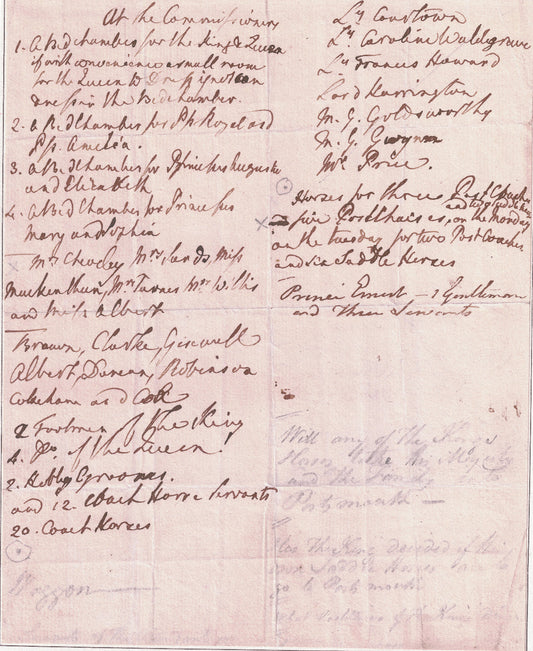 At the Commissioners
1. A Bed chamber for the King & Queen
if with convenience a small room
for the Queen to Dress if not can
dress in the Bedchamber.
2. a Bed Chamber for Pss Royal and
Pss. Amelia.
3. A Bed Chamber for Princesses Augusta
and Elizabeth
4. A Bed Chamber for Princesses
Mary and Sophia
Mrs Cheveley Mrs Sands, Miss
Mackenthun, Mrs Turner Mrs Willis
and Miss Albert
Brawn, Clarke, Giscwell
Albert, Duncan, Robinson
and Cox
2 Footmen of the King
4. Do. of the Queen.
2. Hobby Grooms.
and 12. Coach Horse Servants
20. Coach Horses
Waggon
Ly Courtown
Ly Caroline Waldgrave
Ly Frances Howard
Lord Harrington
M. G. Goldsworthy
M. G. Gwynn
Mr Price.
Horses for three Post Coaches
and five Postchaises, on the Monday
on the tuesday for two Post Coaches
and six Saddle Horses
Prince Ernest — 1 Gentleman
and three Servants
Will any of the Kings
Horses take his Majesty
and the Family to
Portsmouth —
Has the King decided if His
own Saddle Horses are to
go to Portsmouth